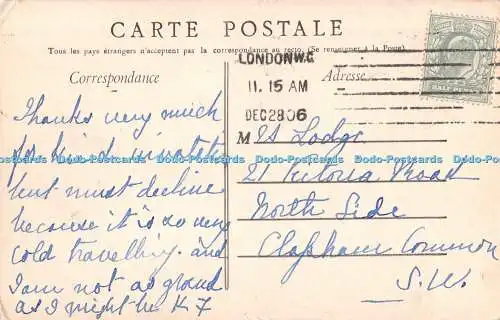 CARTE POSTALE
Tous les pays étrangers n'acceptent pas la correspondance au recto. (Se renseigner à la Poste.)
Correspondance
Adresse
LONDON W.C
11. 15 AM
DEC 28 06
HALF PENNY
Thanks very much
for kind
but must decline
because it is so very
cold travelling. and
I am not as grand
as I might be K.F
M
Lodge
21 Victoria Road
North Side
Clapham Common
S.W.
Dodo-Postcards Dodo-Postcards Dodo-Postcards Dodo-Postcards Dodo-Postcards Dodo-Postcards